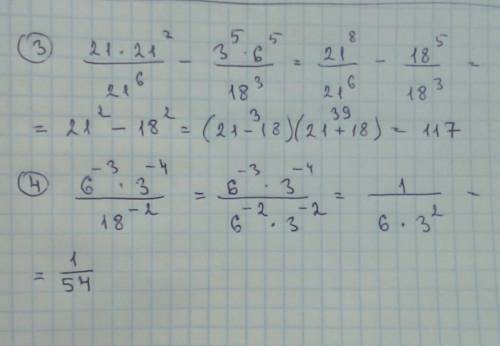 ③ (21 · 21²)/21⁶ - (3⁵ · 6⁵)/18³ = 21⁸/21⁶ - 18⁵/18³ =
= 21² - 18² = (21 - 18)³(21 + 18)³⁹ = 117
④ (6⁻³ · 3⁻⁴)/18⁻² = (6⁻³ · 3⁻⁴)/(6⁻² · 3⁻²) = 1/(6 · 3²) =
= 1/54